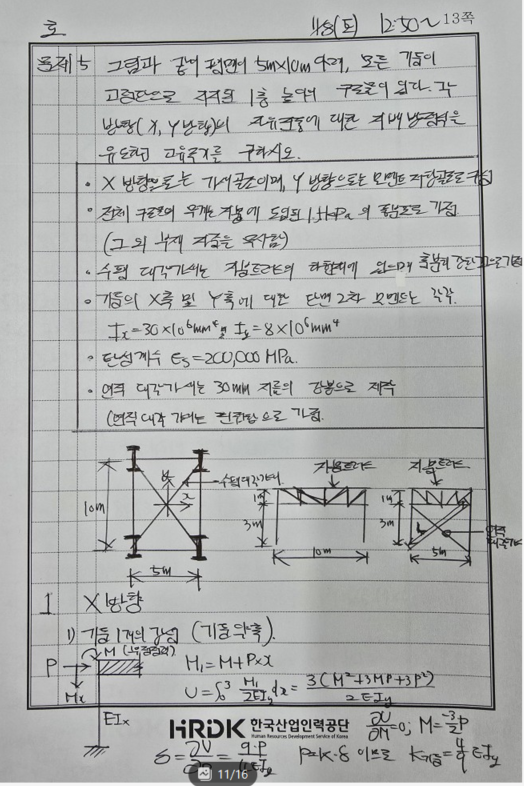 호 11/8(토) 12:50~ 13쪽
문제 5 그림과 같이 평면이 5m×10m 이며, 모든 기둥이
고정단으로 지지된 1층 높이의 구조물이 있다. 각
방향(X, Y방향)의 자유진동에 대한 지배방정식을
유도하고 고유주기를 구하시오.
• X 방향으로는 가새골조이며, Y 방향으로는 모멘트 저항골조로 구성
• 전체 구조물의 무게는 지붕에 도입된 1. kPa 의 등분포로 가정
(그 외 부재 자중은 무시함)
• 수평 대각가새는 지붕트러스의 하현재에 있으며 충분히 강한 것으로 가정
• 기둥의 X축 및 Y축에 대한 단면 2차 모멘트는 각각.
Ix=30×10⁶mm⁴ 및 Iy=8×10⁶mm⁴
• 탄성계수 Es=200,000 MPa.
• 연직 대각가새는 30mm 지름의 강봉으로 제작
(연직 대각 가새는 핀접합으로 가정.
수평대각가새
10m
x
5m
지붕트러스
1m
3m
10m
지붕트러스
1m
3m
L
5m
1 X방향
1) 기둥 1개의 강성 (기둥 약축).
P M (부정정력)
Mx
EIx
M₁=M+P×x
U=∫₀³ M₁/2EIy dx = 3(M²+3MP+3P²)/2EIy
∂U/∂M=0; M=-3/2 P
HRDK 한국산업인력공단
Human Resources Development Service of Korea
δ= ∂U/ = 9·P/ P=K·δ 이므로 K기둥=4/9 EIy
11/16